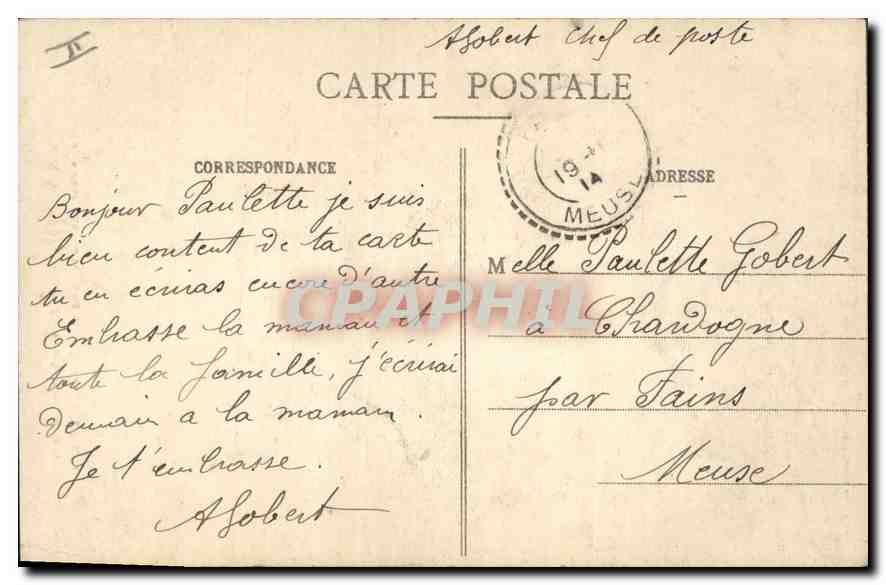 II
AGobert Chef de poste
CARTE POSTALE
CORRESPONDANCE
ADRESSE
19
14
MEUSE
Bonjour Paulette je suis
bien content de ta carte
tu en écriras encore d'autre
Embrasse la maman et
toute la famille, j'écrirai
Demain a la maman.
Je t'embrasse.
AGobert
Melle Paulette Gobert
à Chardogne
par Fains
Meuse
CPAPHIL